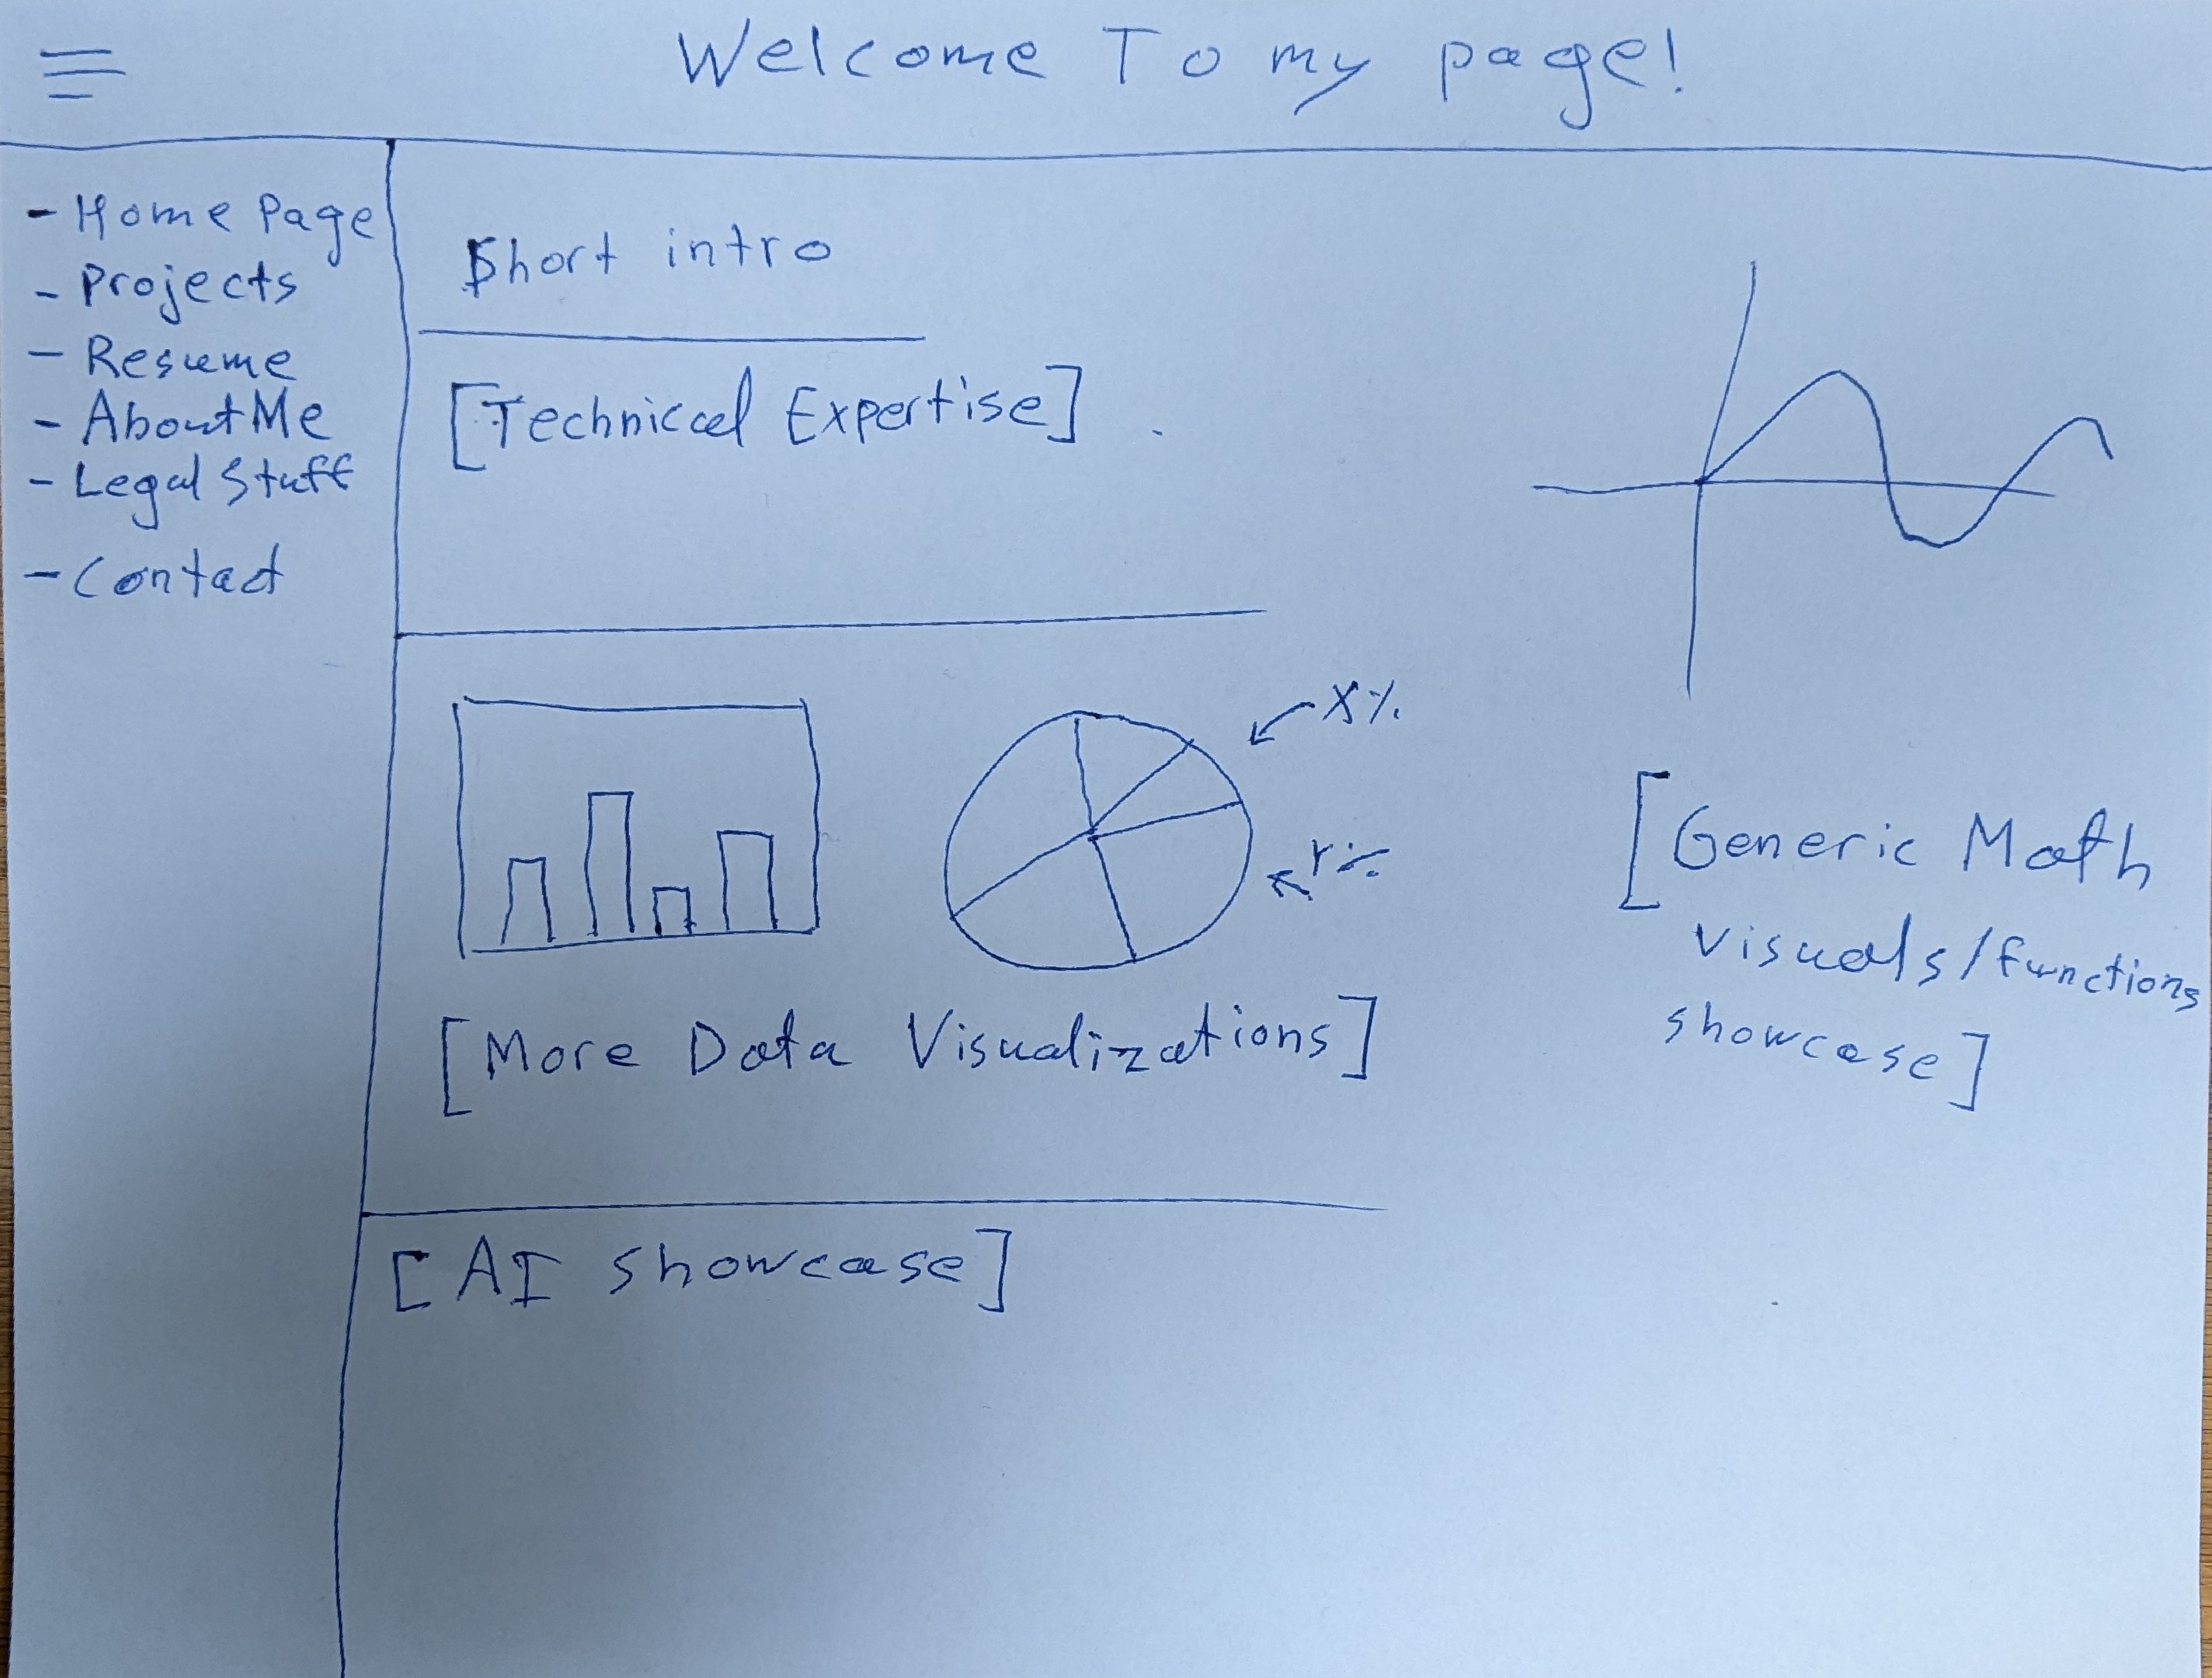 Welcome To my page!
- Home Page
- Projects
- Resume
- About Me
- Legal Stuff
- Contact
Short intro
[Technical Expertise]
X%
Y%
[More Data Visualizations]
[AI showcase]
[Generic Math
visuals/functions
showcase]